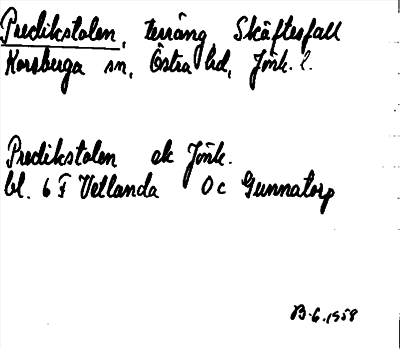 Predikstolen, terräng Skäftesfall
Korsberga sn, Östra hd, Jönk. l.
Predikstolen ek Jönk.
bl. 6 F Vetlanda 0 c Gunnatorp
B-6.1958